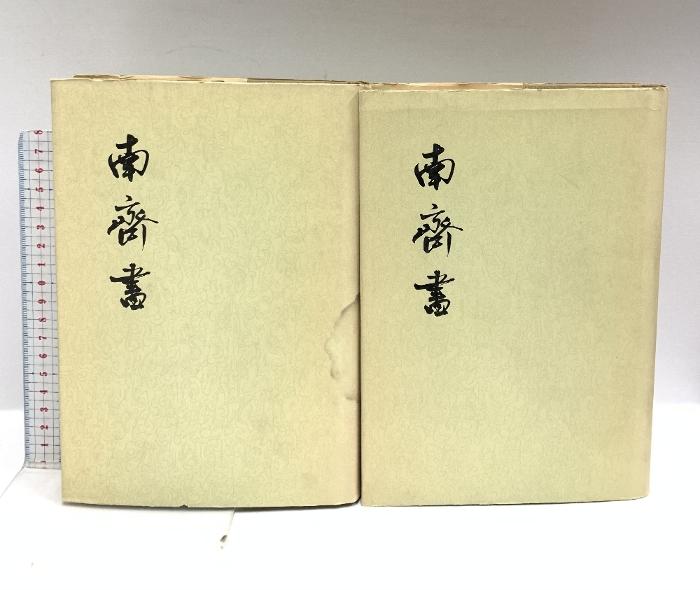 南齊書
南齊書